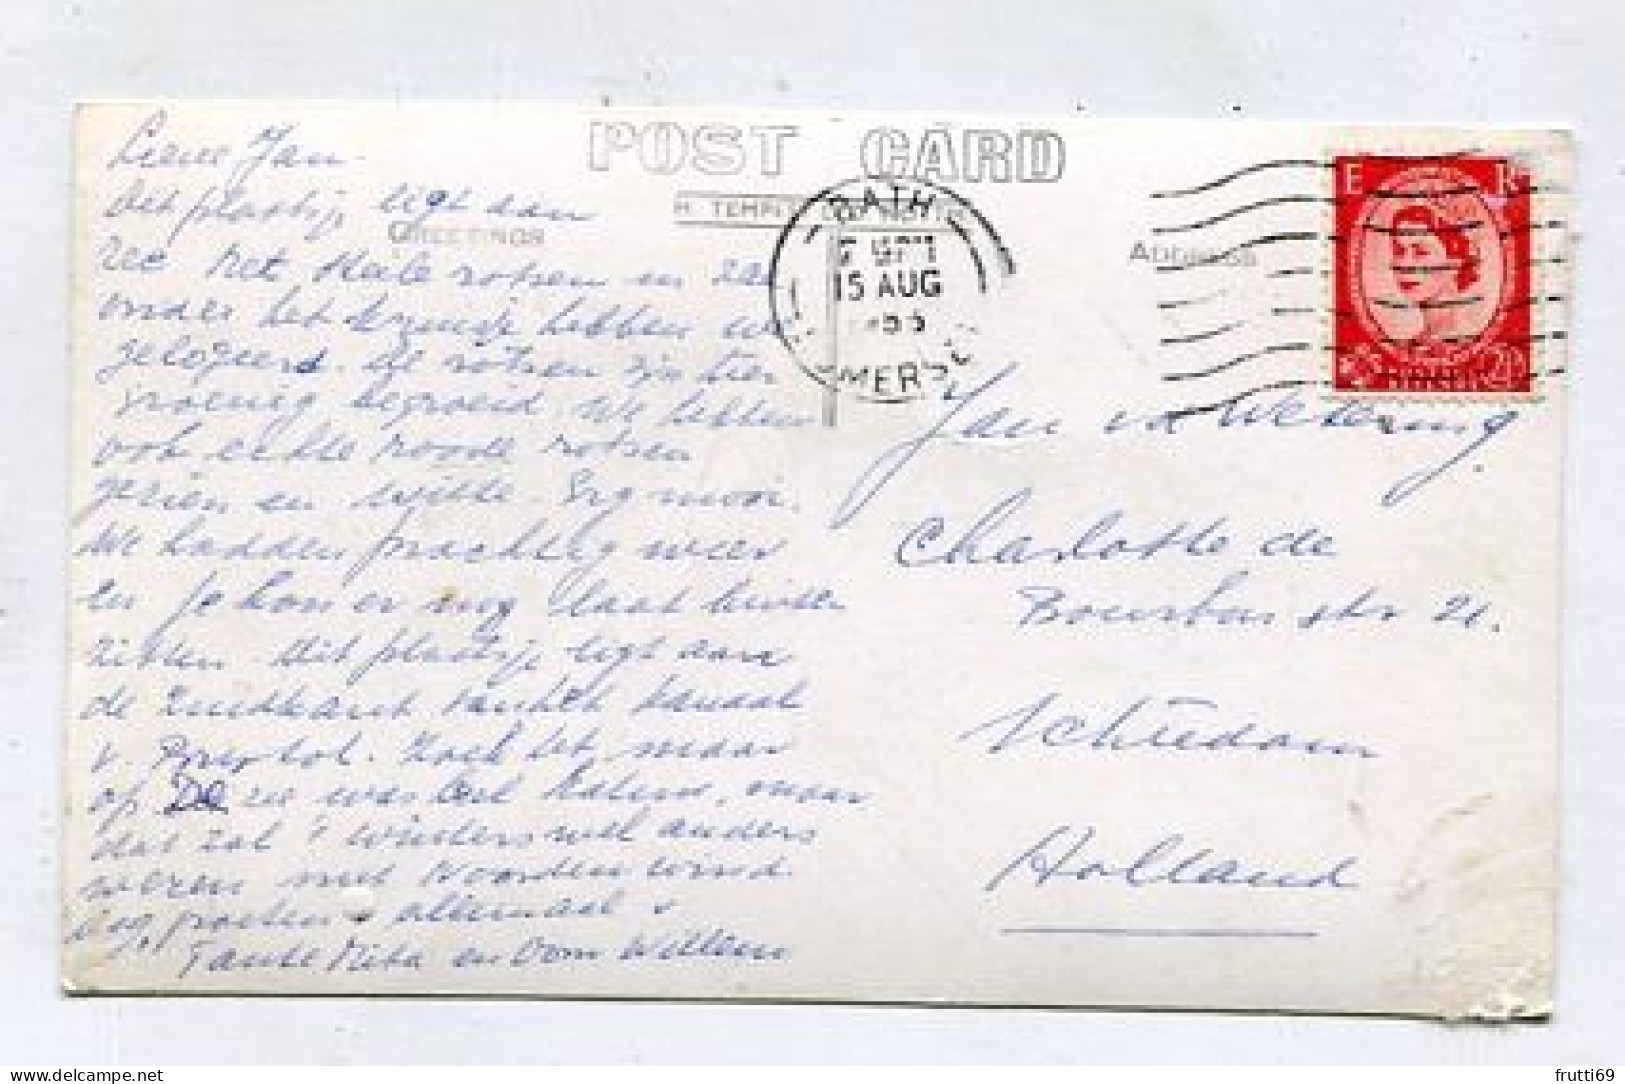 POST CARD
GREETINGS
ADDRESS
BATH
15 AUG
Lieve Jan
Dit plaatsje ligt aan
zee met steile rotsen en
onder het kruisje hebben we
gelogeerd. De rotsen zijn hier
groenig begroeid. We hebben
ook echte roode rotsen
gezien en witte. Erg mooi.
We hadden prachtig weer
en je kon er nog laat buiten
zitten. Dit plaatsje ligt aan
de Zuidkant van het kanaal
v. Bristol. Zoek het maar
op De zee was heel kalm, maar
dat zal 's winters wel anders
wezen met Noordenwind.
Dag, groeten allemaal
Tante Mita en Oom Willem
Jan v.d. Wetering.
Charlotte de
Bourbonstr 21.
Schiedam
Holland
delcampe.net
frutti69